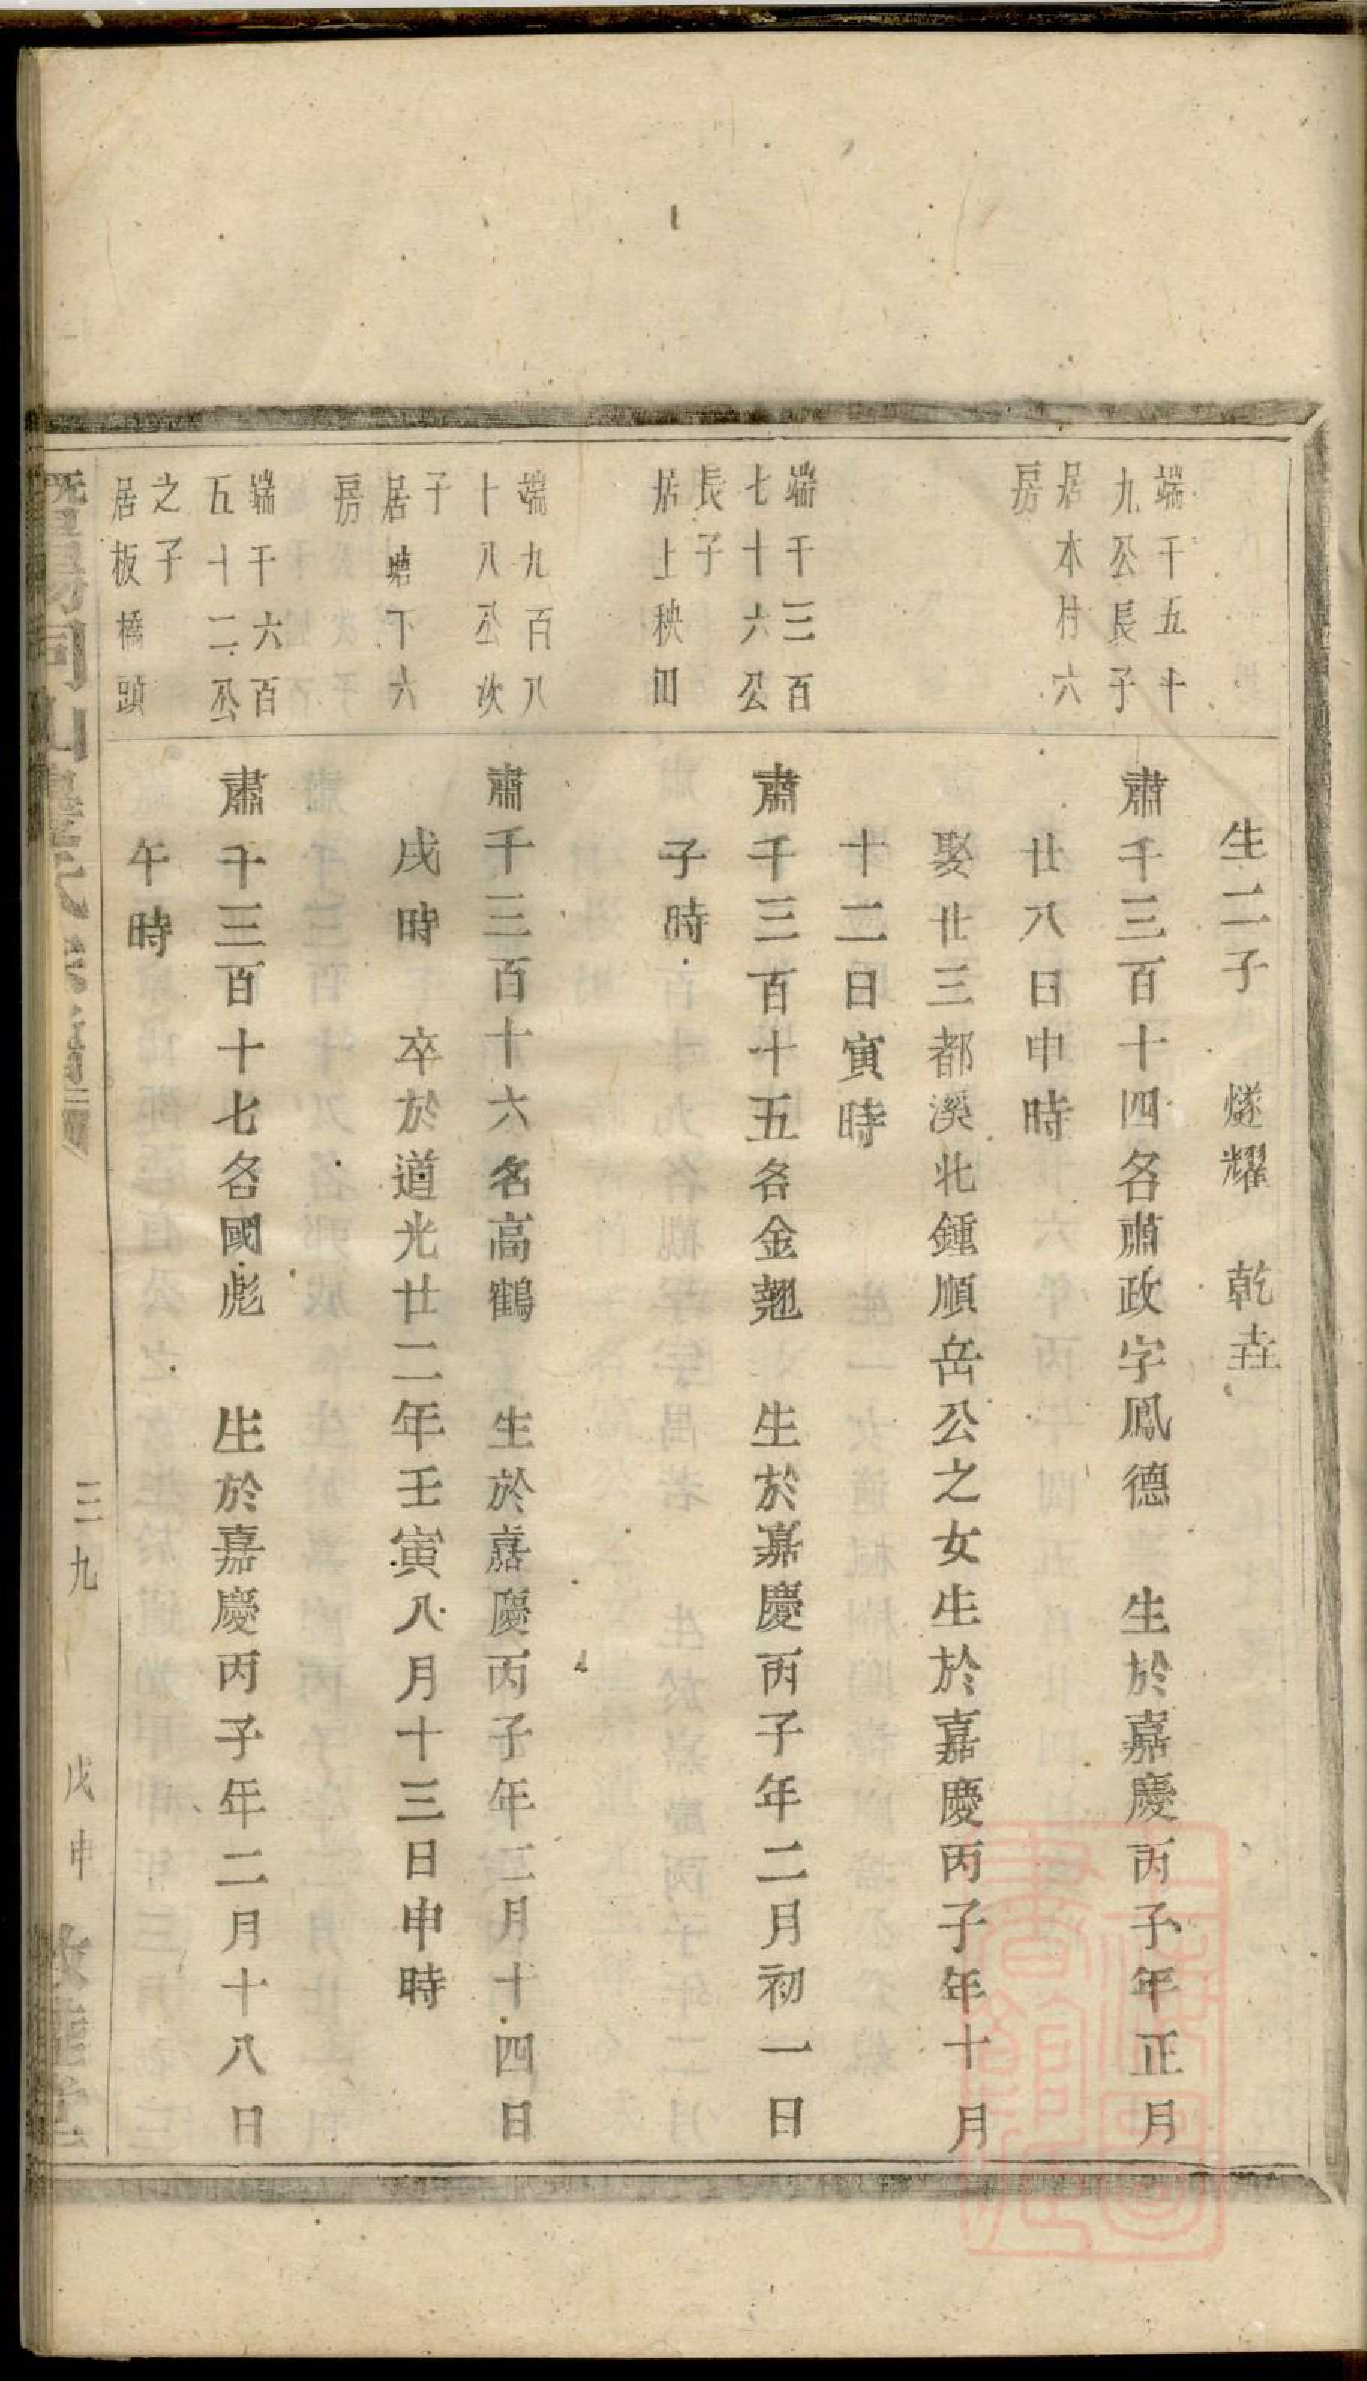 生二子 燧耀 乾垚
端千五十
九公長子
居本村六
房
肅千三百十四名肅政字鳳德 生於嘉慶丙子年正月
廿八日申時
娶廿三都溪北鍾順岳公之女生於嘉慶丙子年十月
十二日寅時
端千三百
七十六公
長子
居上秧田
肅千三百十五名金翹 生於嘉慶丙子年二月初一日
子時
端九百八
十八公次
子
居塘下六
房
肅千三百十六名高鶴 生於嘉慶丙子年二月十四日
戌時 卒於道光廿二年壬寅八月十三日申時
端千六百
五十二公
之子
居板橋頭
肅千三百十七名國彪 生於嘉慶丙子年二月十八日
午時
三九
戊申